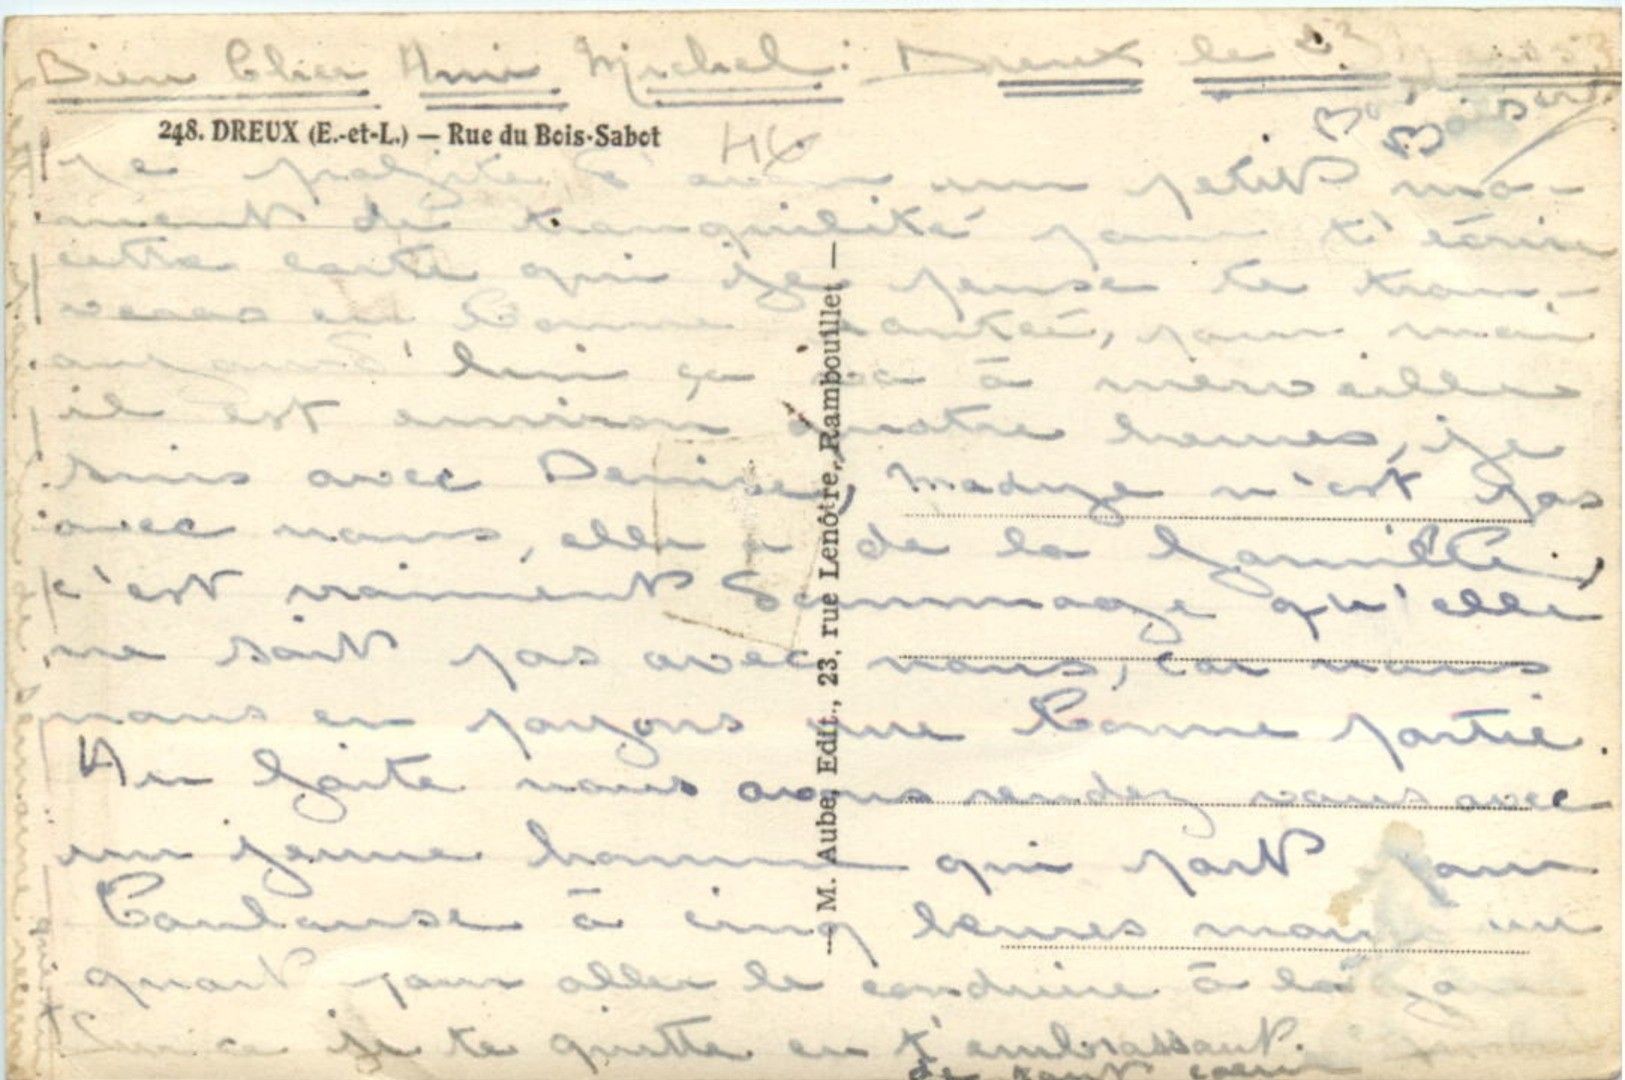 Bien Cher Ami Michel : Dreux le 23
248. DREUX (E.-et-L.) — Rue du Bois-Sabot
Je profite d'avoir un petit mo-
ment de tranquilité pour t'écrire
cette carte qui je pense te trou-
veras en bonne santée, pour moi
aujourd'hui ça va à merveille
il est environ quatre heures, je
suis avec Denise, Madyge n'est pas
avec nous, elle a de la famille,
c'est vraiment dommage qu'elle
ne soit pas avec nous, car nous
nous en payons une bonne partie.
Au faite nous avons rendez vous avec
un jeune homme qui part pour
Toulouse à cinq heures moins un
quart pour aller le conduire à la gare
Sur ce je te quitte en t'embrassant.
de tout coeur
— M. Aubé, Edit., 23, rue Lenôtre, Rambouillet —